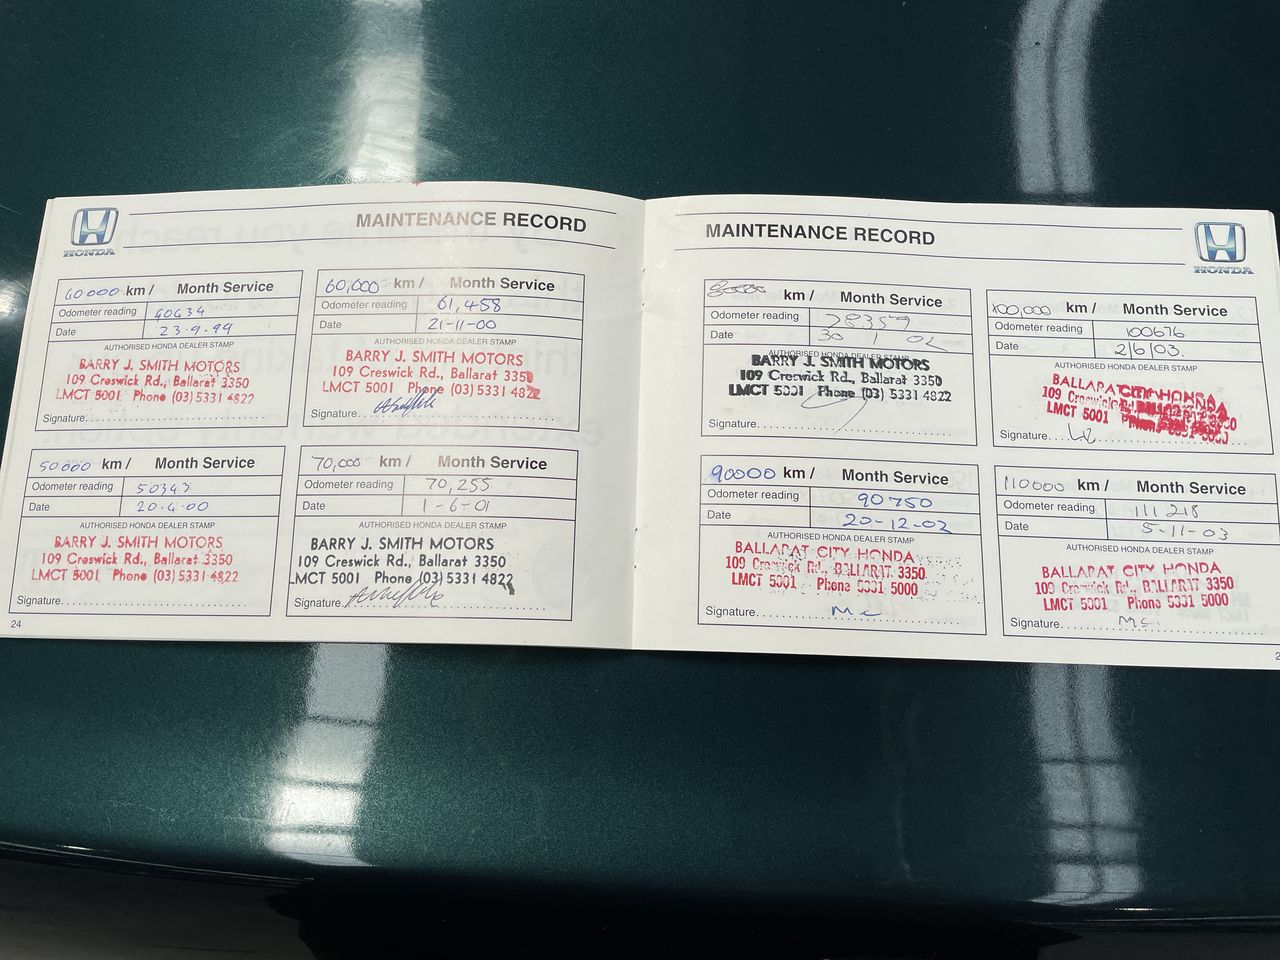 HONDA
MAINTENANCE RECORD
40000 km / Month Service
Odometer reading 40634
Date 23-9-99
AUTHORISED HONDA DEALER STAMP
BARRY J. SMITH MOTORS
109 Creswick Rd., Ballarat 3350
LMCT 5001 Phone (03) 5331 4822
Signature
60,000 km / Month Service
Odometer reading 61,458
Date 21-11-00
AUTHORISED HONDA DEALER STAMP
BARRY J. SMITH MOTORS
109 Creswick Rd., Ballarat 3350
LMCT 5001 Phone (03) 5331 4822
Signature
50000 km / Month Service
Odometer reading 50343
Date 20.4.00
AUTHORISED HONDA DEALER STAMP
BARRY J. SMITH MOTORS
109 Creswick Rd., Ballarat 3350
LMCT 5001 Phone (03) 5331 4822
Signature
70,000 km / Month Service
Odometer reading 70,255
Date 1-6-01
AUTHORISED HONDA DEALER STAMP
BARRY J. SMITH MOTORS
109 Creswick Rd., Ballarat 3350
LMCT 5001 Phone (03) 5331 4822
Signature
24
MAINTENANCE RECORD
HONDA
80000 km / Month Service
Odometer reading 78359
Date 30 1 02
AUTHORISED HONDA DEALER STAMP
BARRY J. SMITH MOTORS
109 Creswick Rd., Ballarat 3350
LMCT 5001 Phone (03) 5331 4822
Signature
100,000 km / Month Service
Odometer reading 100676
Date 2/6/03.
AUTHORISED HONDA DEALER STAMP
BALLARAT CITY HONDA
109 Creswick Rd.,
LMCT 5001 Phone
Signature
90000 km / Month Service
Odometer reading 90750
Date 20-12-02
AUTHORISED HONDA DEALER STAMP
BALLARAT CITY HONDA
109 Creswick Rd., BALLARAT 3350
LMCT 5001 Phone 5331 5000
Signature Mc
110000 km / Month Service
Odometer reading 111 218
Date 5-11-03
AUTHORISED HONDA DEALER STAMP
BALLARAT CITY HONDA
109 Creswick Rd., BALLARAT 3350
LMCT 5001 Phone 5331 5000
Signature Mc.